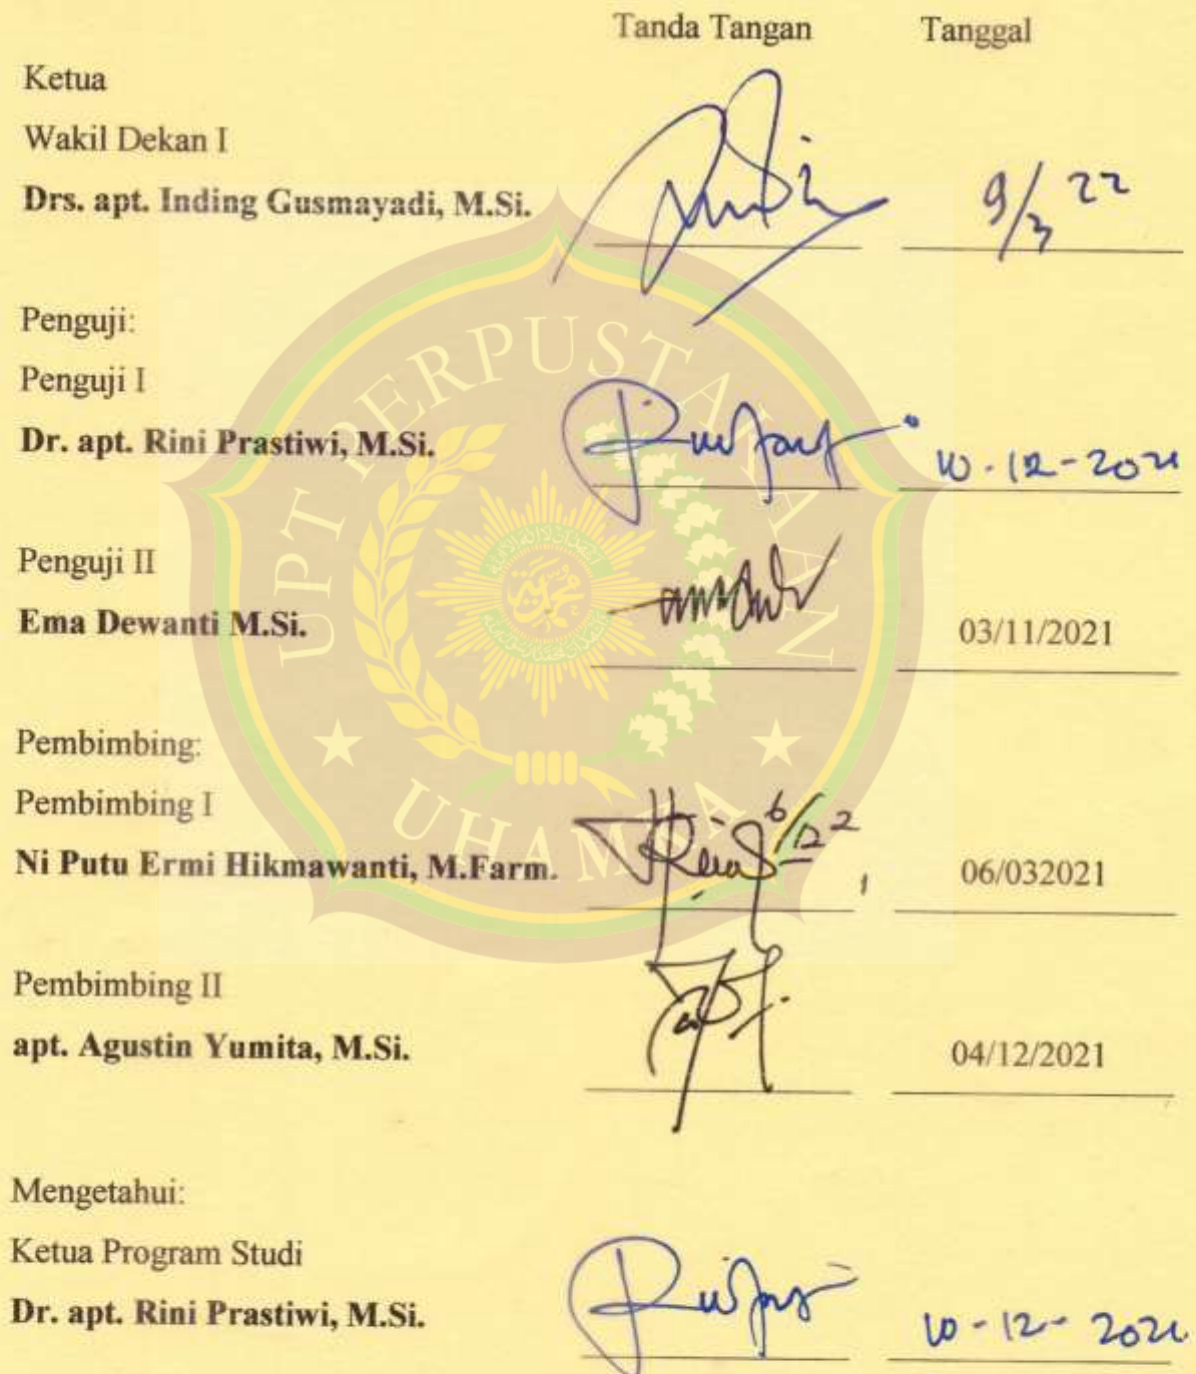 Tanda Tangan Tanggal
Ketua
Wakil Dekan I
Drs. apt. Inding Gusmayadi, M.Si.
9/3 22
Penguji:
Penguji I
Dr. apt. Rini Prastiwi, M.Si.
10-12-2021
Penguji II
Ema Dewanti M.Si.
03/11/2021
Pembimbing:
Pembimbing I
Ni Putu Ermi Hikmawanti, M.Farm.
06/032021
Pembimbing II
apt. Agustin Yumita, M.Si.
04/12/2021
Mengetahui:
Ketua Program Studi
Dr. apt. Rini Prastiwi, M.Si.
10-12-2021
UPT PERPUSTAKAAN
UHAMKA